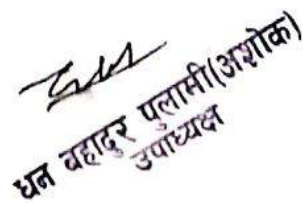 धन बहादुर पुलामी(अशोक)
उपाध्यक्ष